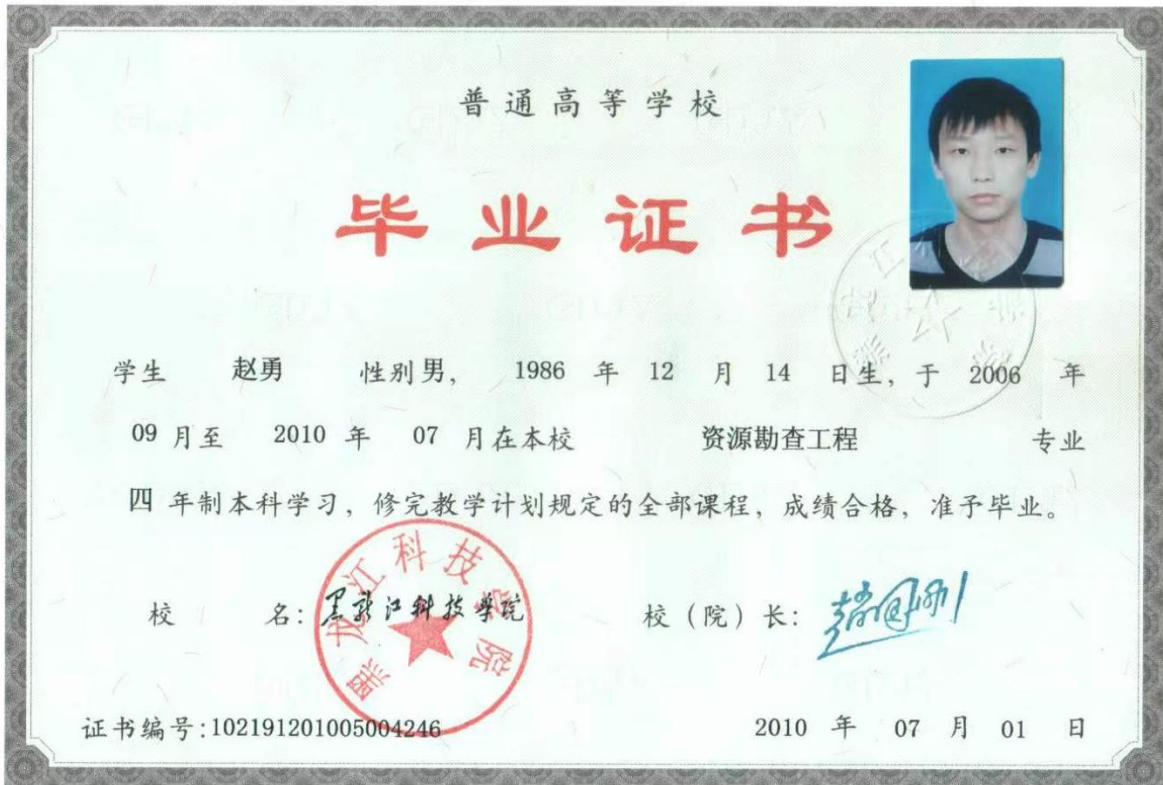 普通高等学校
毕业证书
学生 赵勇 性别男, 1986 年 12 月 14 日生, 于 2006 年
09 月至 2010 年 07 月在本校 资源勘查工程 专业
四 年制本科学习, 修完教学计划规定的全部课程, 成绩合格, 准予毕业。
校 名: 黑龙江科技学院 校(院)长: 赵国刚
黑龙江科技学院
证书编号:102191201005004246 2010 年 07 月 01 日